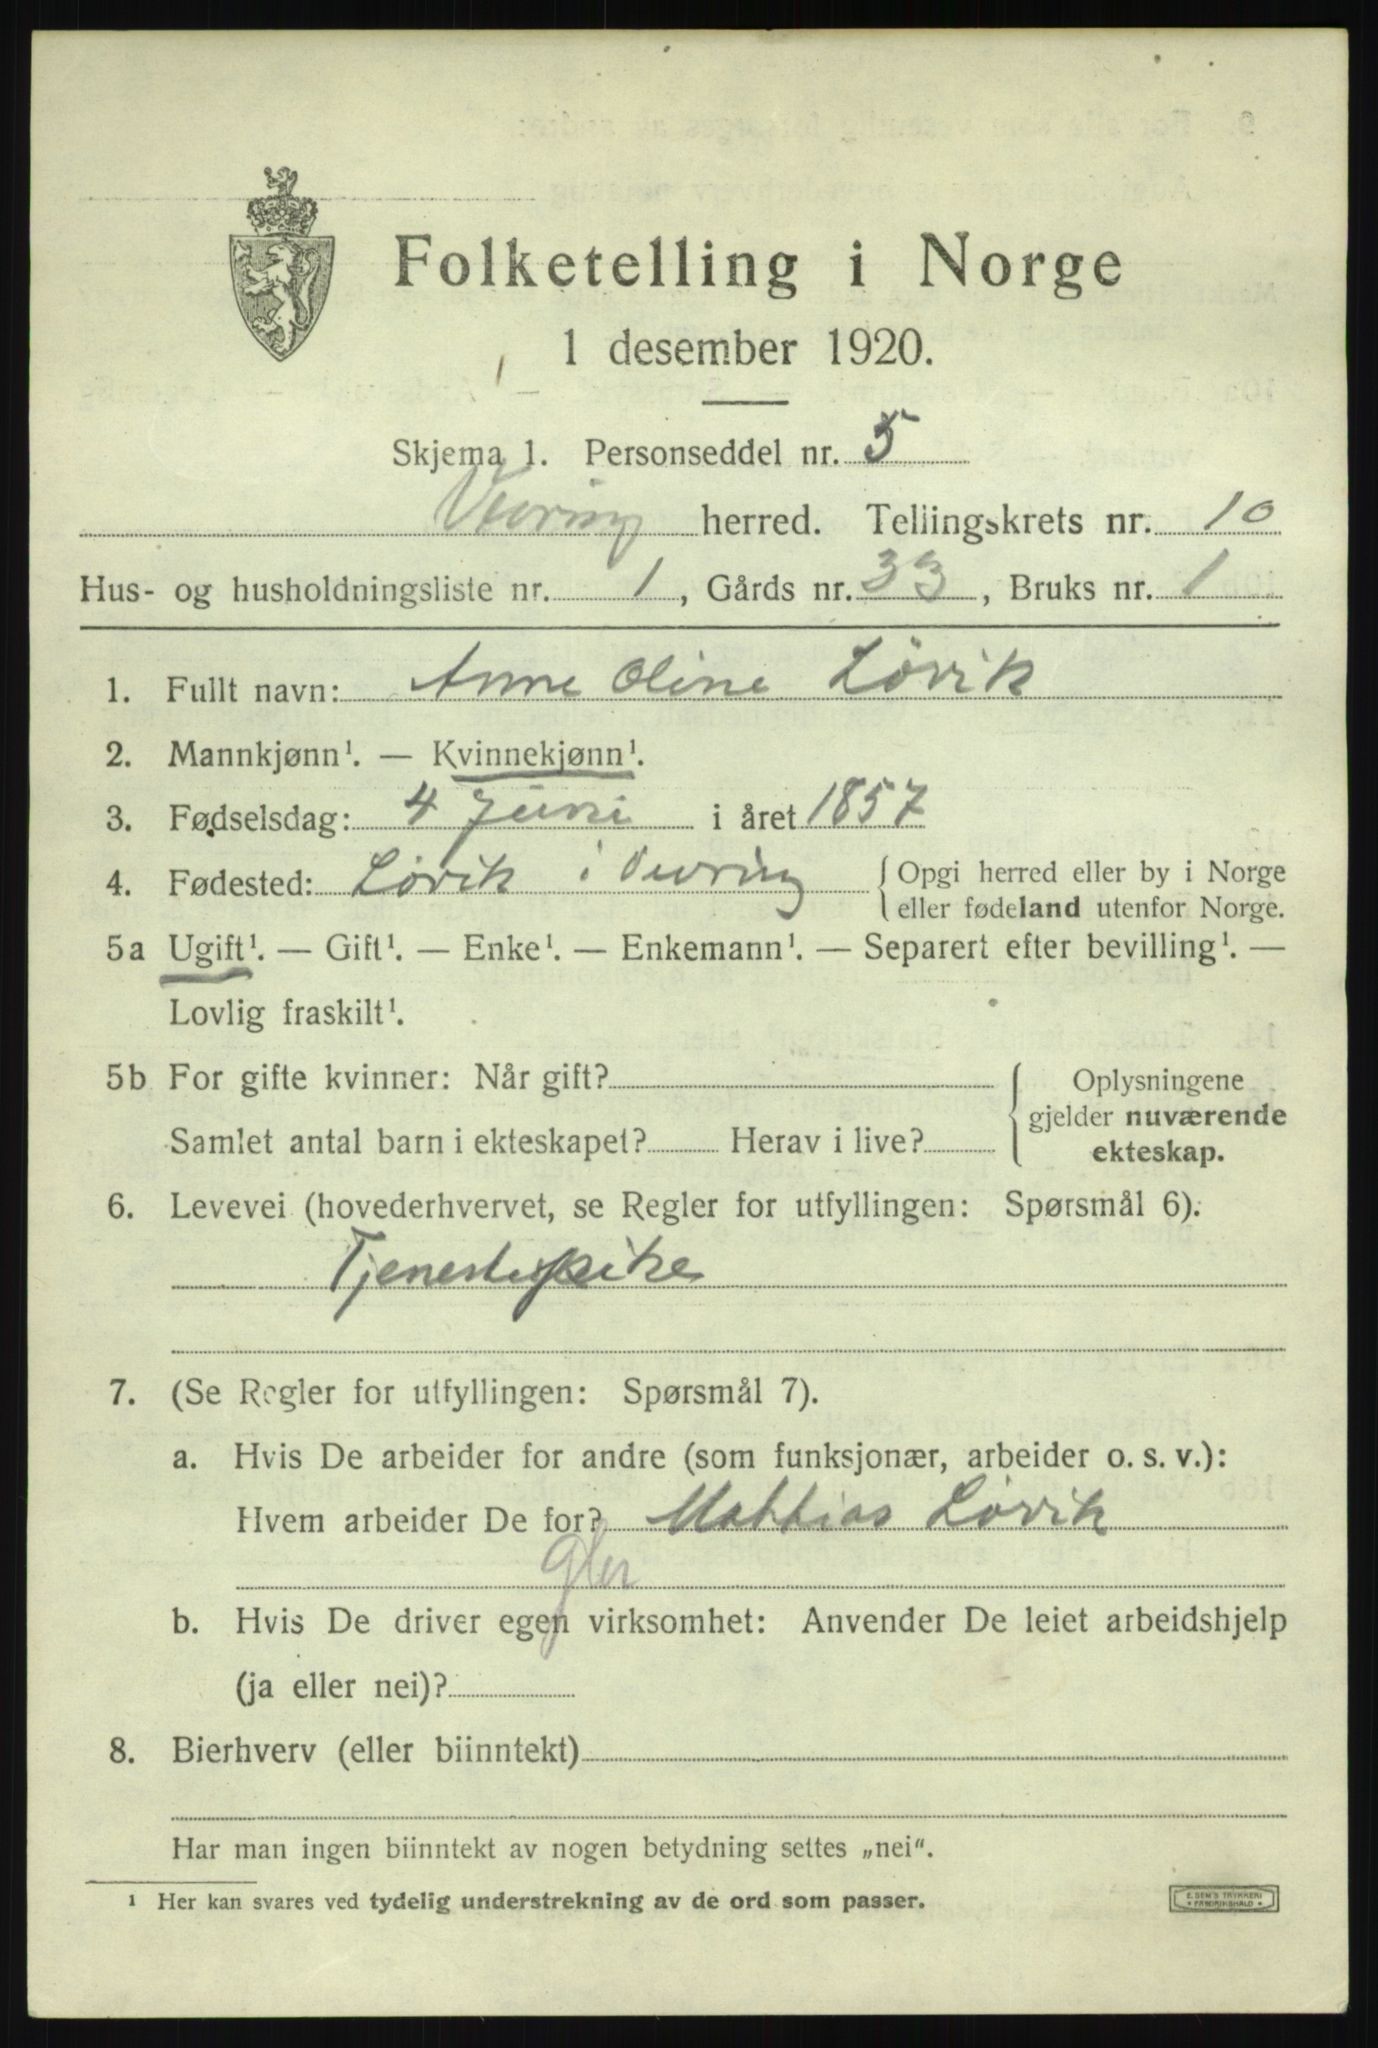 Folketelling i Norge
1 desember 1920.
Skjema 1. Personseddel nr. 5
Vevring herred. Tellingskrets nr. 10
Hus- og husholdningsliste nr. 1, Gårds nr. 33, Bruks nr. 1
1. Fullt navn: Anne Oline Løvik
2. Mannkjønn¹. — Kvinnekjønn¹.
3. Fødselsdag: 4 Juni i året 1857
4. Fødested: Løvik i Vevring { Opgi herred eller by i Norge
eller fødeland utenfor Norge.
5a Ugift¹. — Gift¹. — Enke¹. — Enkemann¹. — Separert efter bevilling¹. —
Lovlig fraskilt¹.
5b For gifte kvinner: Når gift? { Oplysningene
gjelder nuværende
Samlet antal barn i ekteskapet? Herav i live?
ekteskap.
6. Levevei (hovederhvervet, se Regler for utfyllingen: Spørsmål 6).
Tjenestepike
7. (Se Regler for utfyllingen: Spørsmål 7).
a. Hvis De arbeider for andre (som funksjonær, arbeider o. s. v.):
Hvem arbeider De for? Mathias Løvik
b. Hvis De driver egen virksomhet: Anvender De leiet arbeidshjelp
(ja eller nei)?
8. Bierhverv (eller biinntekt)
Har man ingen biinntekt av nogen betydning settes „nei“.
¹ Her kan svares ved tydelig understrekning av de ord som passer.
E. SEM'S TRYKKERI
FREDRIKSHALD